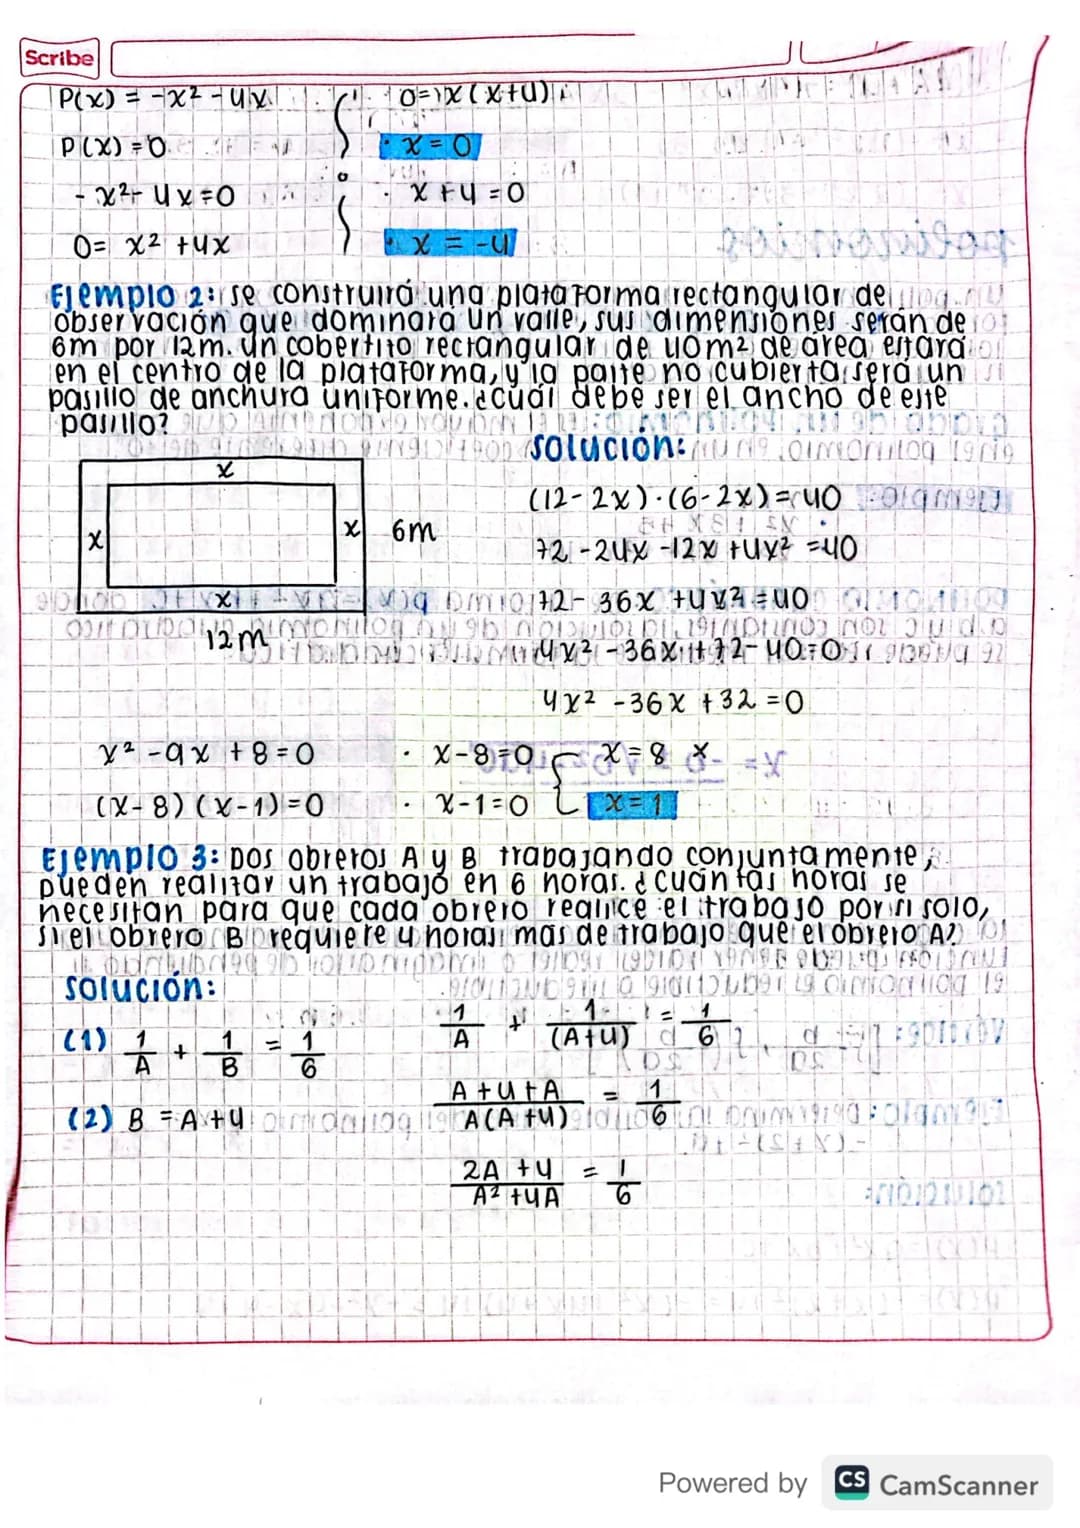 Scribe
P(x) = -x² - 4x
P(x) = 0
- x² - 4x = 0
0 = x² + 4x
0 = x (x+4)
· x = 0
· x + 4 = 0
· x = -4
Ejemplo 2: se construirá una plataforma rectangular de
observación que dominará un valle, sus dimensiones serán de
6m por 12m. un cobertito rectangular de 40m² de area estará
en el centro de la plataforma, y la parte no cubierta será un
pasillo de anchura uniforme. ¿cuál debe ser el ancho de este
pasillo?
solución:
x
x
x
x
6m
12m
(12-2x)·(6-2x)=40
72 -24x -12x +4x² =40
72 - 36x +4x² = 40
4x² -36x + 72 - 40 = 0
4x² -36x + 32 = 0
x² - 9x + 8 = 0
(x-8) (x-1) = 0
· x-8=0
· x-1=0
x = 8 x
x = 1
Ejemplo 3: Dos obreros A y B trabajando conjuntamente,
pueden realizar un trabajo en 6 horas. ¿cuántas horas se
necesitan para que cada obrero realice el trabajo por si solo,
si el obrero B requiere 4 horas mas de trabajo que el obrero A?
solución:
(1) 1/A + 1/B = 1/6
(2) B = A+4
1/A + 1/(A+4) = 1/6
A+4+A / A(A+4) = 1/6
2A +4 / A² +4A = 1/6
Powered by CS CamScanner